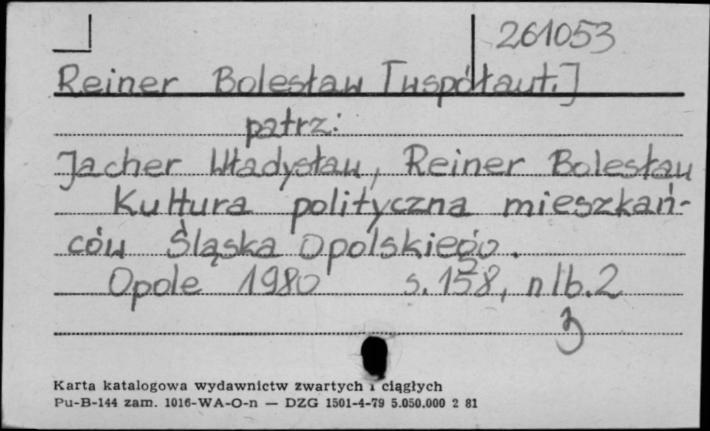 261053
Reiner Bolesław [współaut.]
patrz:
Jacher Władysław, Reiner Bolesław
Kultura polityczna mieszkań-
ców Śląska Opolskiego.
Opole 1980 s. 158, nlb. 2
3
Karta katalogowa wydawnictw zwartych i ciągłych
Pu-B-144 zam. 1016-WA-O-n — DZG 1501-4-79 5.050.000 2 81